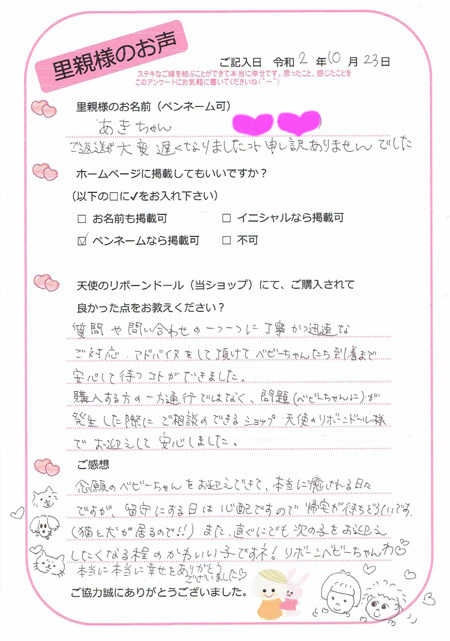 里親様のお声
ご記入日 令和 2 年 10 月 23 日
ステキなご縁を結ぶことができて本当に幸せです。思ったこと、感じたことを
このアンケートにお気軽に書いてくださいね(^ー^)
里親様のお名前（ペンネーム可）
あきちゃん
ご返送が大変遅くなりましたコト申し訳ありませんでした
ホームページに掲載してもいいですか？
（以下の□に✓をお入れ下さい）
□ お名前も掲載可 □ イニシャルなら掲載可
☑ ペンネームなら掲載可 □ 不可
天使のリボーンドール（当ショップ）にて、ご購入されて
良かった点をお教えください？
質問や問い合わせの一つ一つに丁寧かつ迅速な
ご対応、アドバイスをして頂けてベビーちゃんたち到着まで
安心して待つコトができました。
購入する方の一方通行ではなく、問題(ベビーちゃんに)が
発生した際にご相談のできるショップ天使のリボーンドール様
でお迎えして安心しました。
ご感想
念願のベビーちゃんをお迎えできて、本当に癒される日々
ですが、留守にする日は心配ですので帰宅が待ちどうしいです。
(猫と犬が居るので!!) また、直ぐにでも次の子をお迎え
したくなる程のかわいい子ですネ! リボーンベビーちゃんわ♡
本当に本当に幸せをありがとう
ございました♡
ご協力誠にありがとうございました。